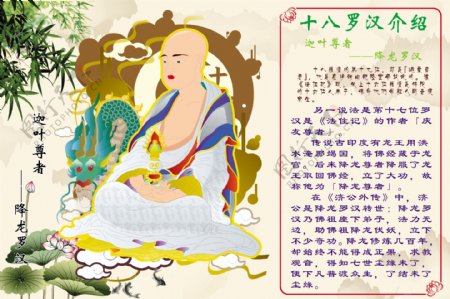 十八罗汉介绍
迦叶尊者
——降龙罗汉
另一说法是第十七位罗
汉是《法住记》的作者「庆
友尊者」
传说古印度有龙王用洪
水淹那竭国，将佛经藏于龙
宫。后来降龙尊者降服了龙
王取回佛经，立了大功，故
称他为「降龙尊者」。
在《济公外传》中，济
公是降龙罗汉转世：降龙罗
汉乃佛祖座下弟子，法力无
边，助佛祖降龙伏妖，立下
不少奇功。降龙修炼几百年，
却始终不能得成正果，求教
观音，得知七世尘缘未了，
便下凡普渡众生，了结未了
尘缘。
迦叶尊者
——降龙罗汉